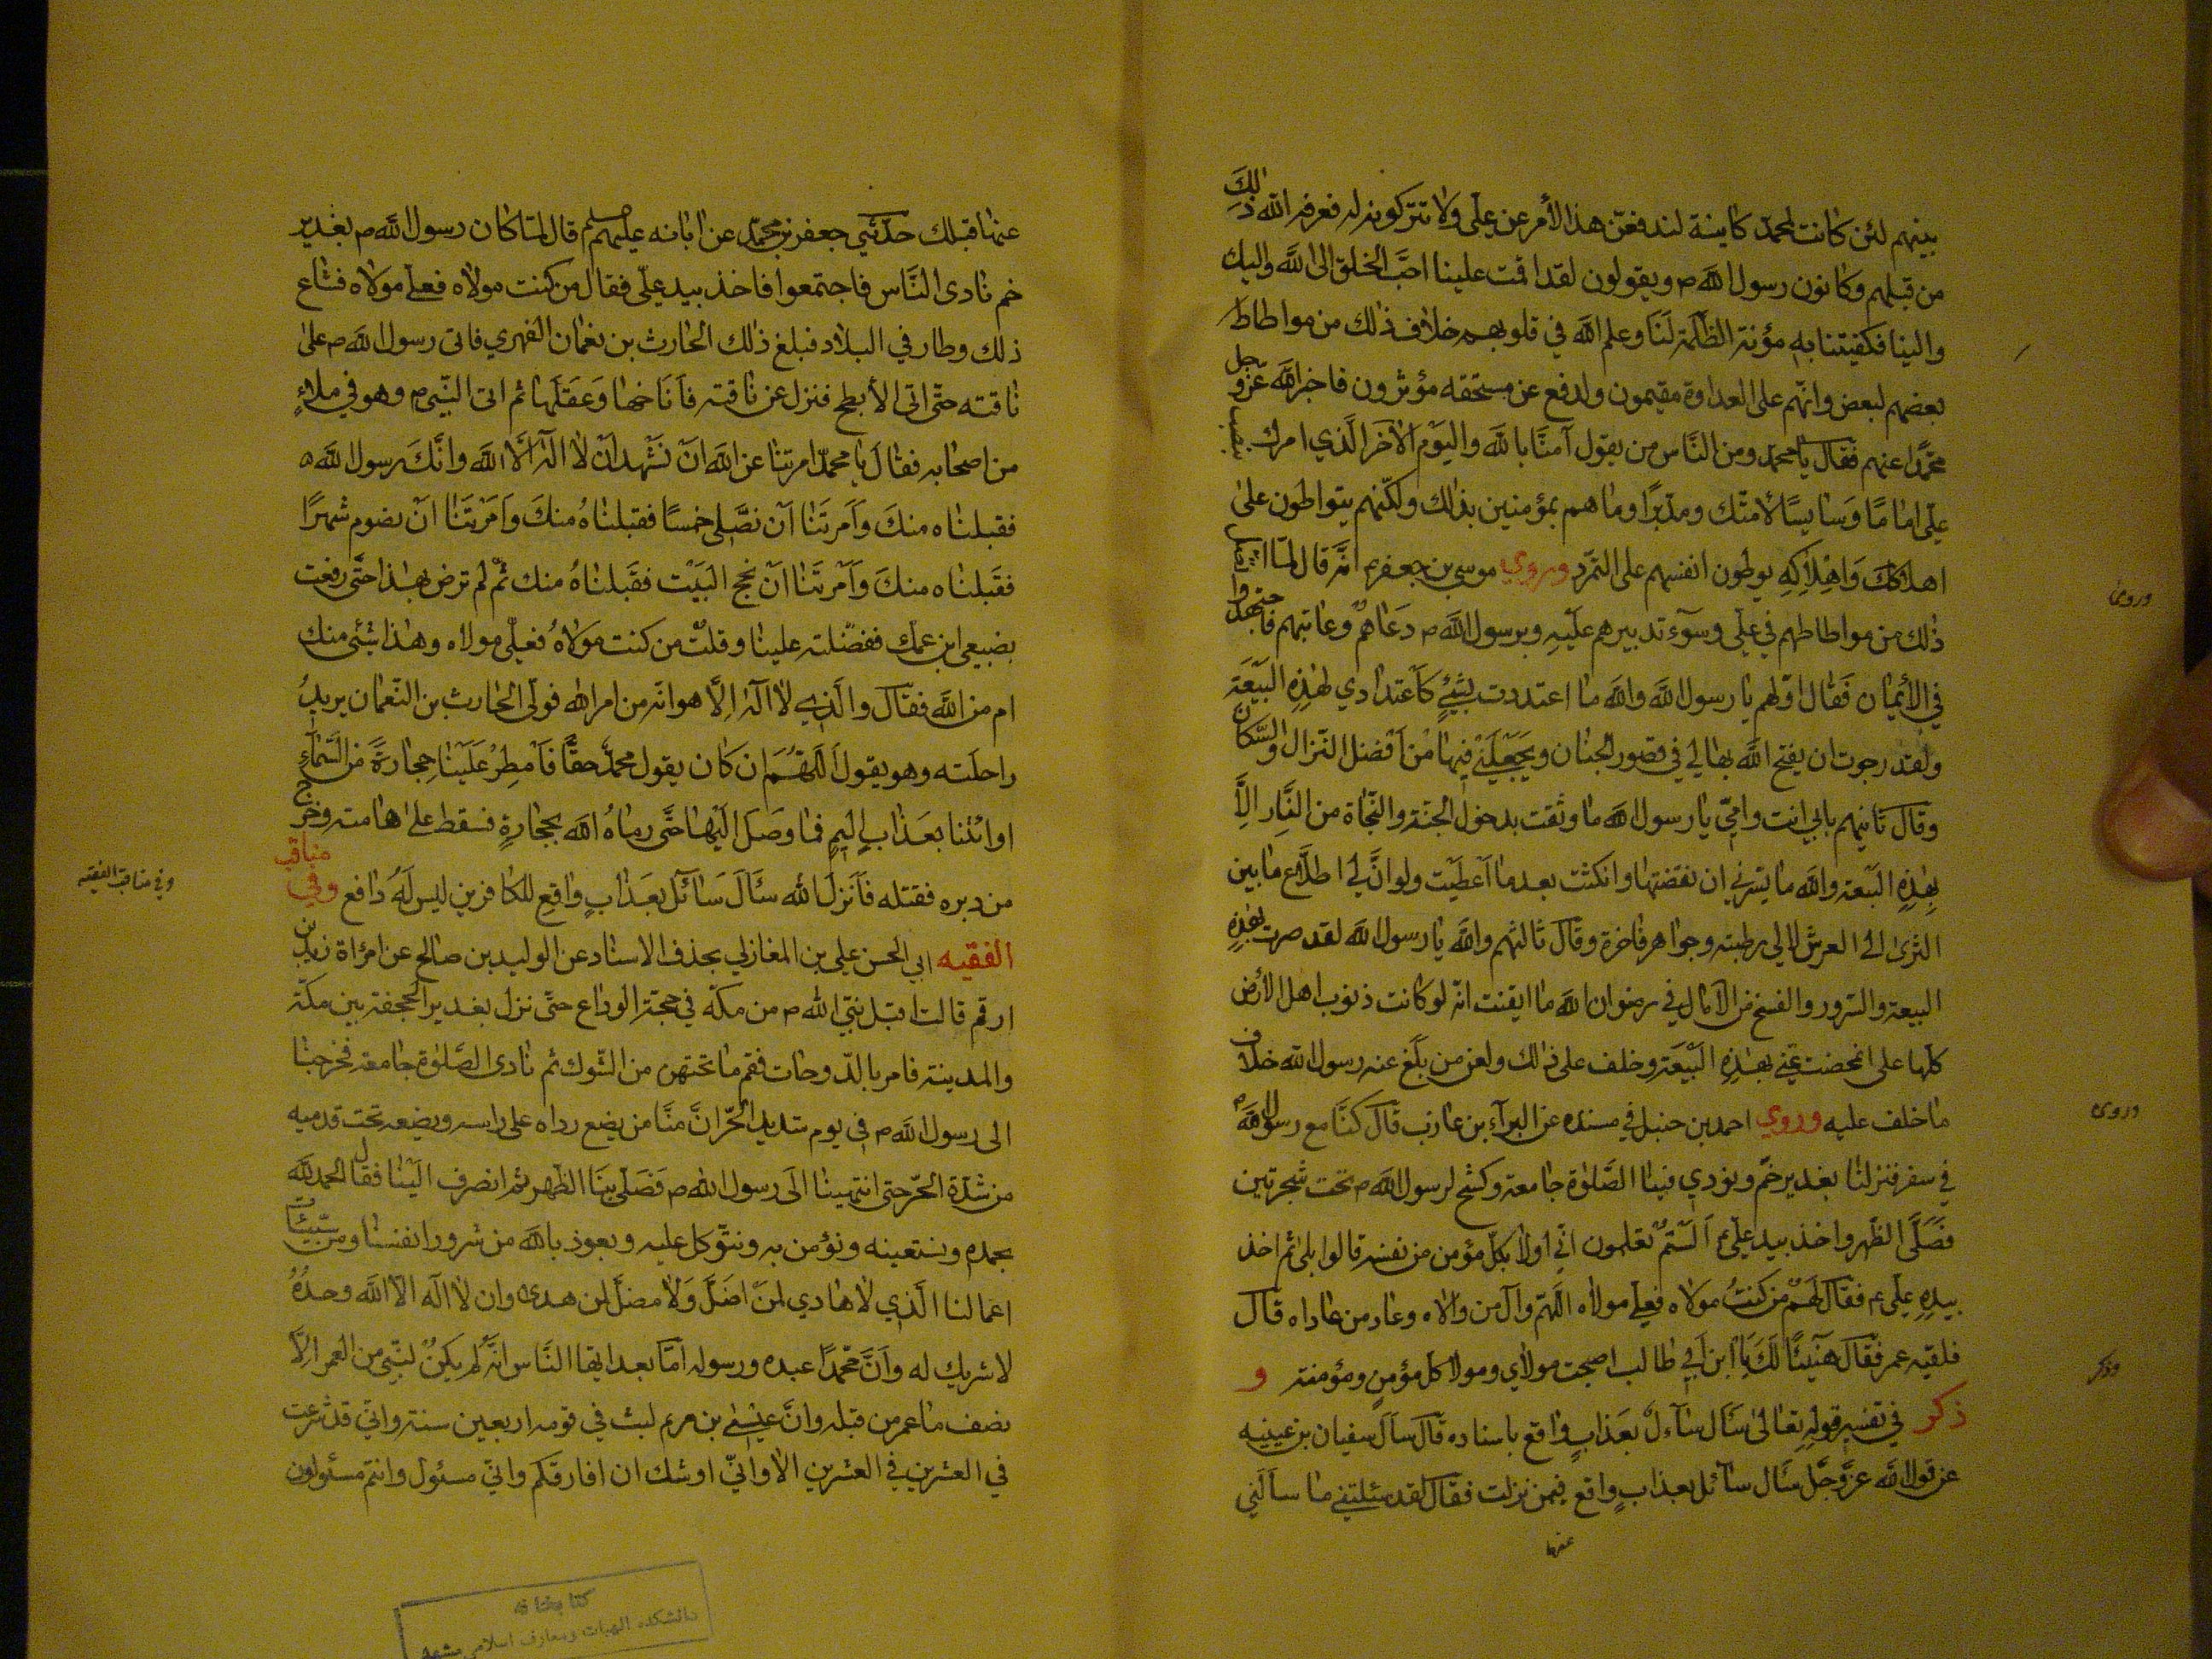 بينهم لئن كانت لمحمد كاينة لندفعن هذا الأمر عن علي ولا تتركونه له فعرف الله ذلك
من قبلهم وكانون رسول الله ص ويقولون لقد اقمت علينا احب الخلق الى الله واليك
والينا فكفيتنا به مؤنة الظلمة لنا وعلم الله في قلوبهم خلاف ذلك من مواطاط
بعضهم لبعض وانهم على العداوة مقيمون ولدفع عن مستحقه مؤثرون فاخبر الله عز وجل
محمدا عنهم فقال يا محمد ومن الناس من يقول آمنا بالله واليوم الآخر الذي امرك بنصب
علي اماما وسايسا لأمتك ومدبرا وما هم بمؤمنين بذلك ولكنهم يتواطون على
اهلاكك واهلاكه يوطون انفسهم على التمرد وروي موسى بن جعفر ع انه قال لما
ذلك من مواطاطهم في علي وسوء تدبيرهم عليه وبرسول الله ص دعاهم وعاتبهم فاجتهدوا
في الأيمان فقال اولهم يا رسول الله والله ما اعتددت بشئ كاعتدادي لهذه البيعة
ولقد رجوت ان يفتح الله بها لي في قصور الجنان ويجعلني فيها من افضل النزال والسكان
وقال ثانيهم بابي انت وامي يا رسول الله ما وثقت بدخول الجنة والنجاة من النار الا
بهذه البيعة والله ما يسرني ان نقضتها وانكثت بعد ما اعطيت ولو ان لي اطلاع ما بين
الثرى الى العرش لالي رطبة وجواهر فاخرة وقال ثالثهم والله يا رسول الله لقد صرت بهذه
البيعة والسرور والفسح من الآمال في رضوان الله ما ايقنت انه لو كانت ذنوب اهل الأرض
كلها على لمحضت عني بهذه البيعة وخلف على ذلك ولعن من بلغ عنه رسول الله خلاف
ما خلف عليه وروي احمد بن حنبل في مسنده عن البرآء بن عازب قال كنا مع رسول الله ص
في سفر فنزلنا بغدير خم ونودي فينا الصلوة جامعة وكسح لرسول الله ص تحت شجرتين
فصلى الظهر واخذ بيد علي ع الستم تعلمون اني اولا بكل مؤمن من نفسه قالوا بلى ثم اخذ
بيده علي ع فقال لهم من كنت مولاه فعلي مولاه اللهم وال من والاه وعاد من عاداه قال
فلقيه عمر فقال هنيئا لك يا ابن ابي طالب اصبحت مولاي ومولا كل مؤمن ومؤمنة و
ذكر في تفسير قوله تعالى سال سآءل بعذاب واقع باسناده قال سال سفيان بن عيينيه
عن قول الله عز وجل سال سآئل بعذاب واقع فيمن نزلت فقال لقد سئلتني ما سالني
عنها
وروى
وروى
وذكر
عنها قبلك حدثني جعفر بن محمد عن ابائه عليهم صلم قال لما كان رسول الله ص بغدير
خم نادى الناس فاجتمعوا فاخذ بيد علي فقال من كنت مولاه فعلي مولاه فشاع
ذلك وطار في البلاد فبلغ ذلك الحارث بن نعمان الفهري فاتى رسول الله ص على
ناقته حتى اتى الأبطح فنزل عن ناقته فاناخها وعقلها ثم اتى النبي ص وهو في ملاء
من اصحابه فقال يا محمد امرتنا عن الله ان نشهد ان لا اله الا الله وانك رسول الله
فقبلناه منك وامرتنا ان نصلى خمسا فقبلناه منك وامرتنا ان نصوم شهرا
فقبلناه منك وامرتنا ان نحج البيت فقبلناه منك ثم لم ترض بهذا حتى رفعت
بضبعي ابن عمك ففضلته علينا وقلت من كنت مولاه فعلي مولاه وهذا شئ منك
ام من الله فقال والذي لا اله الا هو انه من امر الله فولى الحارث بن النعمان يريد
راحلته وهو يقول اللهم ان كان يقول محمد حقا فامطر علينا حجارة من السمآء
اوائتنا بعذاب اليم فما وصل اليها حتى رماه الله بحجارة فسقط على هامته وخرج
من دبره فقتله فانزل الله سال سآئل بعذاب واقع للكافرين ليس له دافع وفي مناقب
الفقيه ابي الحسن علي بن المغازلي بحذف الاسناد عن الوليد بن صالح عن امراة زيد بن
ارقم قالت اقبل نبي الله ص من مكة في حجة الوداع حتى نزل بغدير الجحفة بين مكة
والمدينة فامر بالدوحات فقم ما تحتهن من الشوك ثم نادى الصلوة جامعة فخرجنا
الى رسول الله ص في يوم شديد الحر ان منا من يضع رداه على راسه ويضعه تحت قدميه
من شدة الحر حتى انتهينا الى رسول الله ص فصلى بنا الظهر ثم انصرف الينا فقال الحمد لله
بحمده ونستعينه ونؤمن به ونتوكل عليه ونعوذ بالله من شرور انفسنا ومن سيئات
اعمالنا الذي لا هادي لمن اضل ولا مضل لمن هدى وان لا اله الا الله وحده
لا شريك له وان محمدا عبده ورسوله اما بعد ايها الناس انه لم يكن لنبي من العمر الا
نصف ما عمر من قبله وان عيسى بن مريم لبث في قومه اربعين سنة واني قد شرعت
في العشرين في العشرين الا واني اوشك ان افارقكم واني مسئول وانتم مسئولون
وفي مناقب الفقيه
كتابخانه
دانشكده الهيات ومعارف اسلامى مشهد